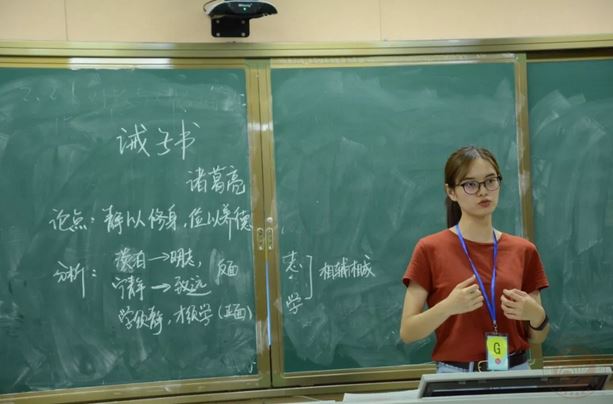 诫子书
诸葛亮
论点：静以修身，俭以养德
分析：
澹泊→明志，
宁静→致远
反面
学须静，才须学（正面）
志
学
相辅相成
G